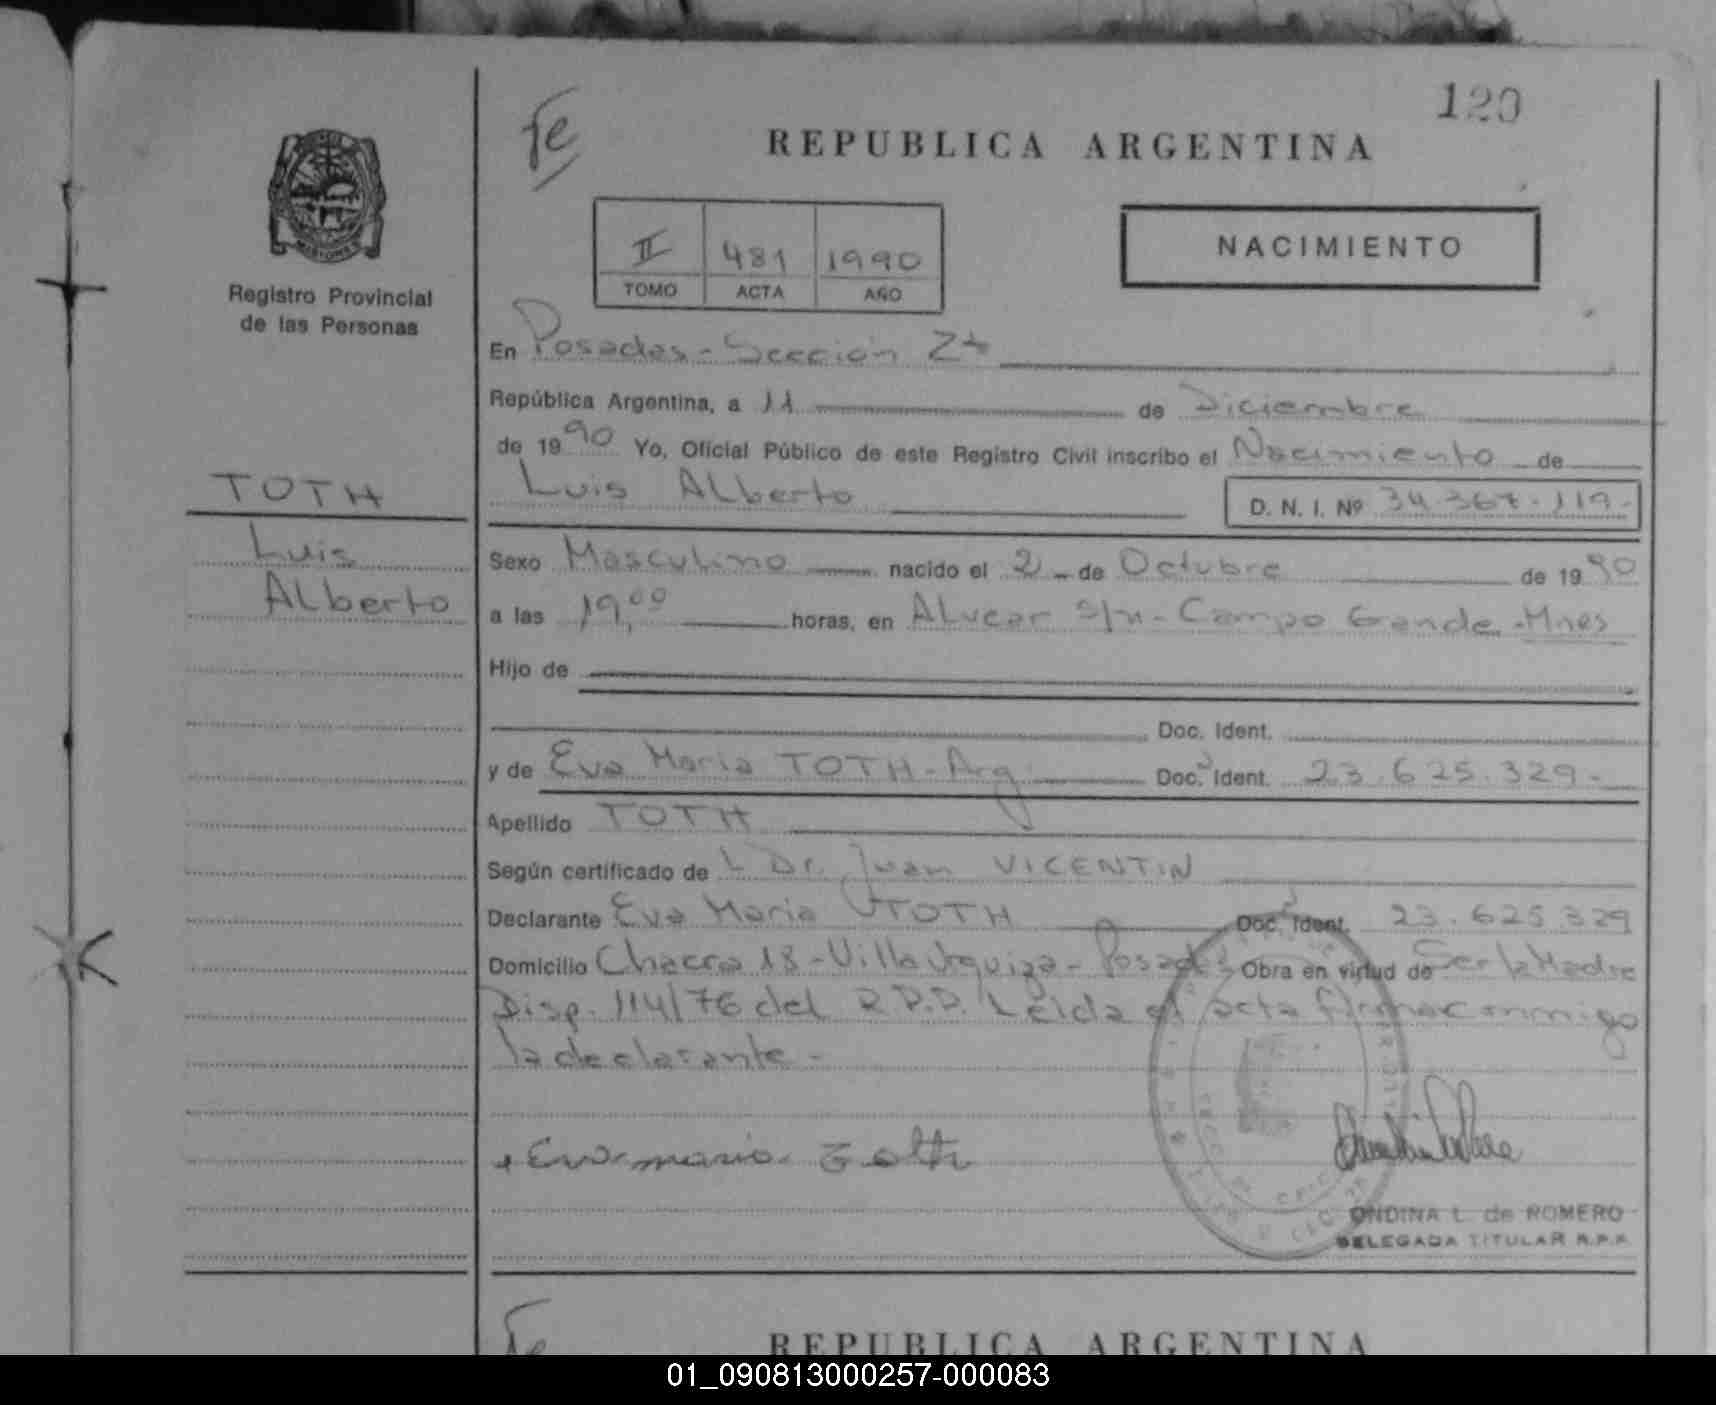 120
fe
REPUBLICA ARGENTINA
II 481 1990
TOMO ACTA AÑO
NACIMIENTO
MISIONES
Registro Provincial
de las Personas
En Posadas - Sección 7ª
República Argentina, a 11 de Diciembre
de 1990 Yo, Oficial Público de este Registro Civil inscribo el Nacimiento de
Luis Alberto D. N. I. Nº 34.367.119.-
TOTH
Luis
Alberto
Sexo Masculino nacido el 2 de Octubre de 1990
a las 19,00 horas, en Alvear s/n - Campo Grande - Mnes
Hijo de
Doc. Ident.
y de Eva Maria TOTH - Arg Doc. Ident. 23.625.329.-
Apellido TOTH
Según certificado de L Dr. Juan VICENTIN
Declarante Eva Maria TOTH Doc. Ident. 23.625.329
Domicilio Chacra 18 - Villa Urquiza - Posadas Obra en virtud de Ser la Madre
Disp. 114/76 del R.P.P. Leída el acta firma conmigo
la declarante -
Eva maria Toth
ONDINA L. de ROMERO
DELEGADA TITULAR R.P.P.
fe
REPUBLICA ARGENTINA
01_090813000257-000083